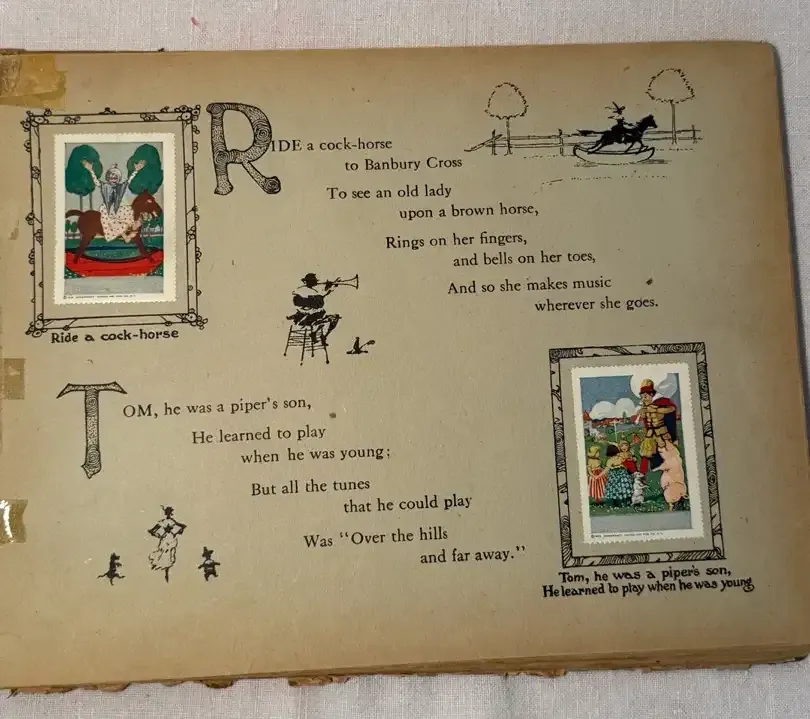 RIDE a cock-horse
to Banbury Cross
To see an old lady
upon a brown horse,
Rings on her fingers,
and bells on her toes,
And so she makes music
wherever she goes.
Ride a cock-horse
TOM, he was a piper's son,
He learned to play
when he was young;
But all the tunes
that he could play
Was "Over the hills
and far away."
Tom, he was a piper's son,
He learned to play when he was young